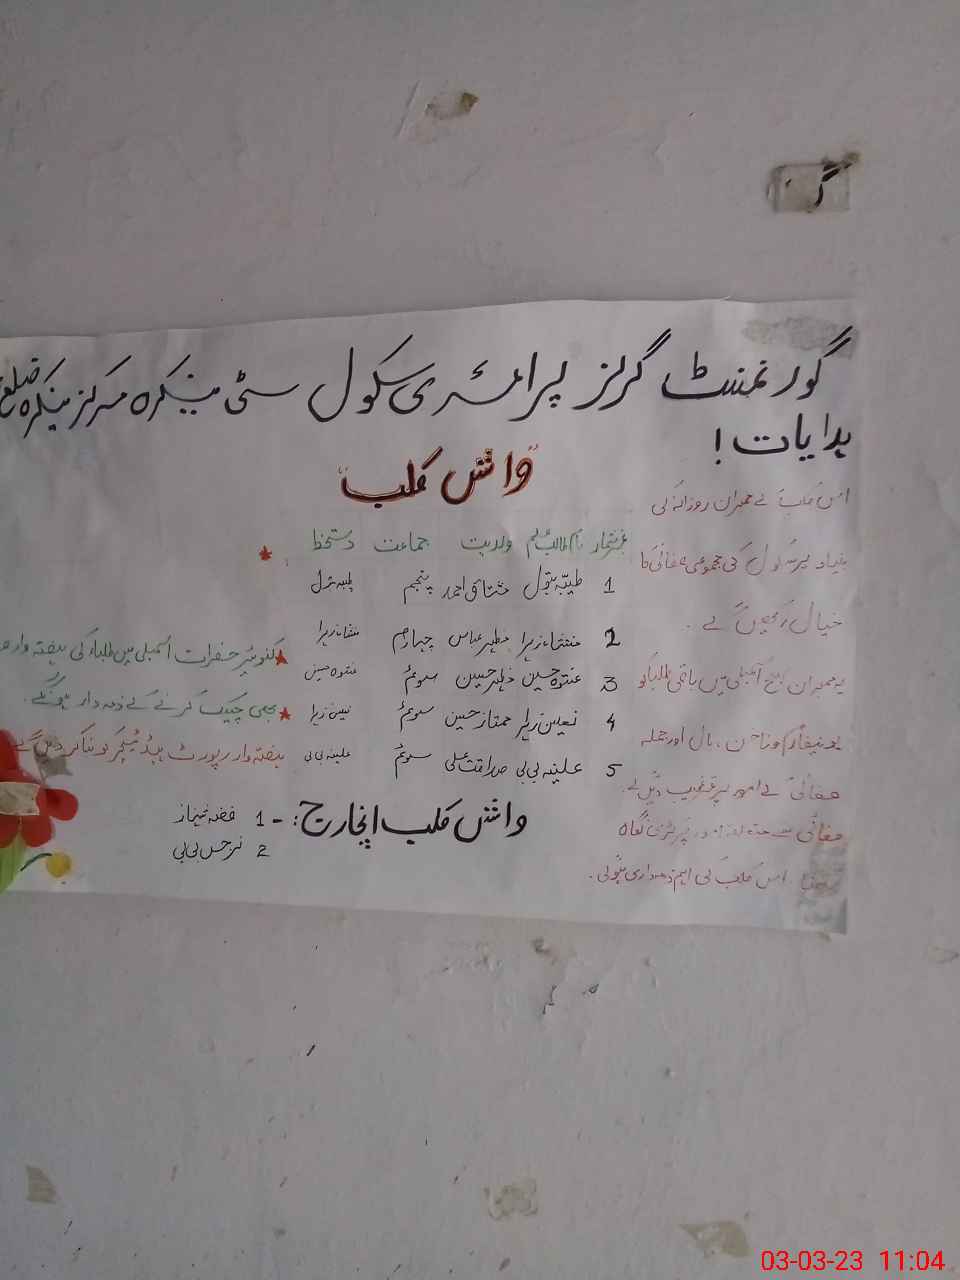 گورنمنٹ گرلز پرائمری سکول سٹی منیکرہ مرکز منیکرہ ضلع
ہدایات !
"واش کلب"
نمبر شمار نام طالب علم ولدیت جماعت دستخط
1 طیبہ بتول مشتاق احمد پنجم
2 منشاء زہرا مظہر عباس چہارم
3 حسین سوئم
4 زہرا ممتاز حسین سوئم
5 علینہ بی بی صداقت علی سوئم علینہ بی بی
واش کلب انچارج :-
1 فضہ شہناز
2 نرجس بی بی
اس کلب کے ممبران روزانہ کی
بنیاد پر سکول کی مجموعی صفائی کا
خیال رکھیں گے ۔
یہ ممبران صبح اسمبلی میں باقی طلباء کو
یونیفارم ناخن، بال اور جملہ
صفائی کے امور پر ترغیب دیں گے۔
صفائی سے متعلقہ امور پر کڑی نگاہ
رکھنا اس کلب کی اہم ذمہ داری ہوگی ۔
کنوینیر حضرات اسمبلی میں طلباء کی ہفتہ وار
بھی چیک کرنے کے ذمہ دار ہونگے۔
ہفتہ وار رپورٹ ہیڈ ٹیچر کو بنا کر دیں گے
03-03-23 11:04